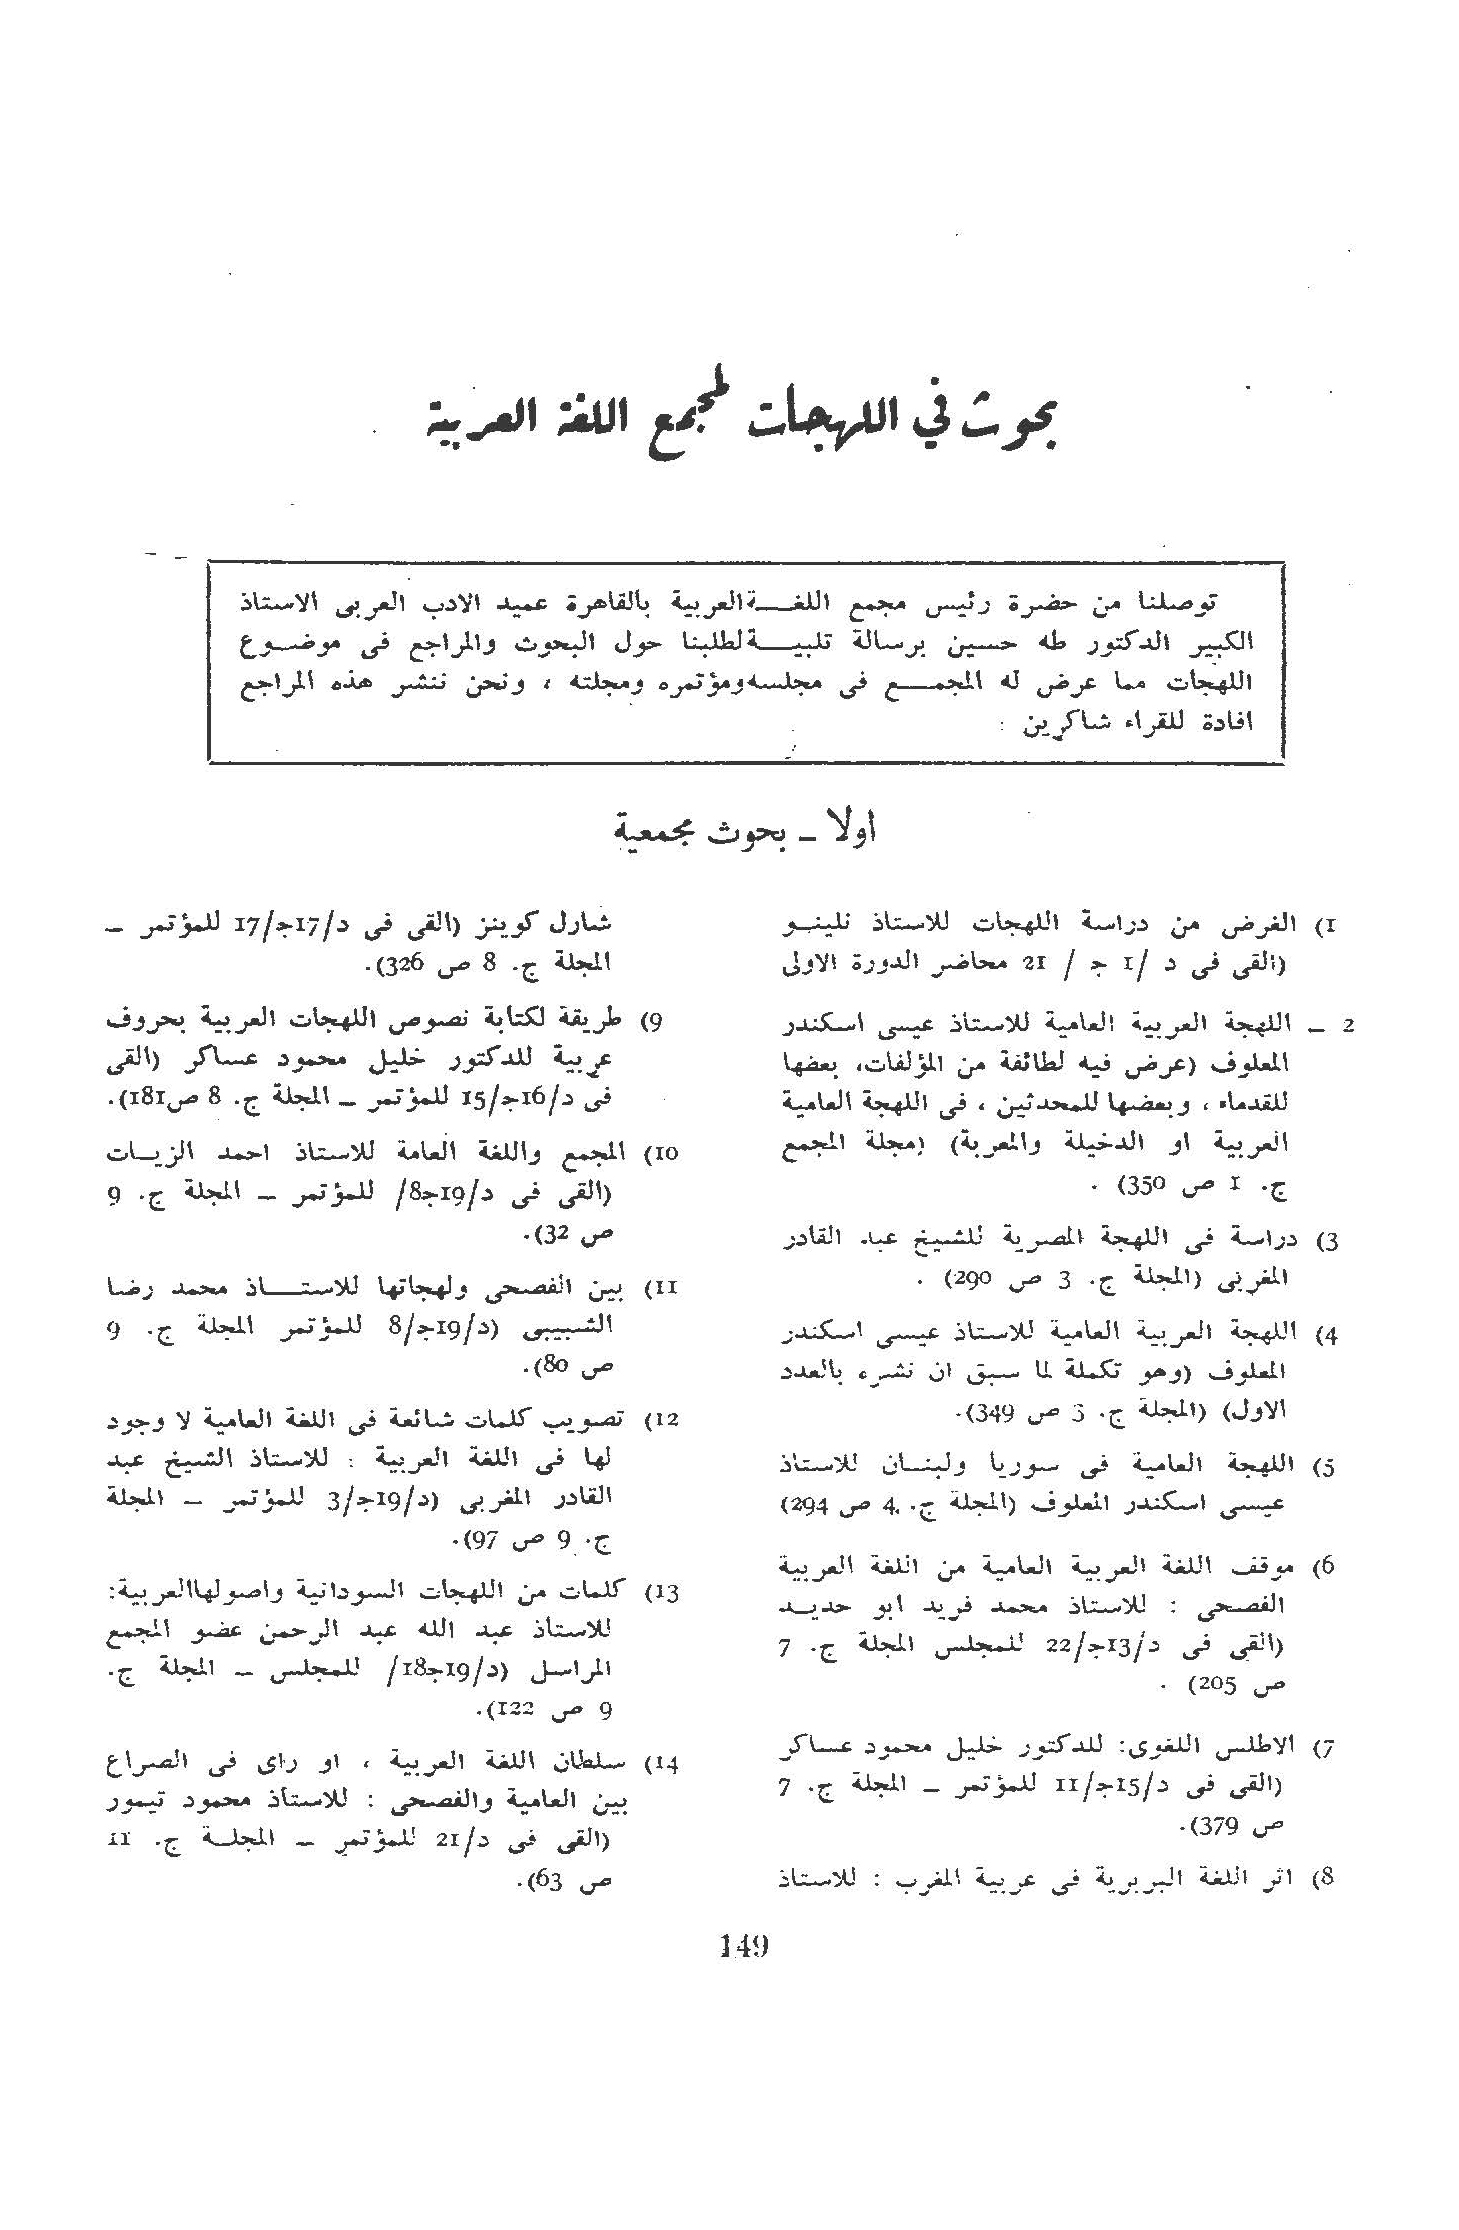 بحوث في اللهجات لمجمع اللغة العربية
توصلنا من حضرة رئيس مجمع اللغـة العربية بالقاهرة عميد الادب العربى الاستاذ
الكبير الدكتور طه حسين برسالة تلبيـة لطلبنا حول البحوث والمراجع فى موضـوع
اللهجات مما عرض له المجمـع فى مجلسه ومؤتمره ومجلته ، ونحن ننشر هذه المراجع
افادة للقراء شاكرين :
اولا ــ بحوث مجمعية
1) الغرض من دراسة اللهجات للاستاذ نلينـو
(القى فى د /1 جـ / 21 محاضر الدورة الاولى
2 ــ اللهجة العربية العامية للاستاذ عيسى اسكندر
المعلوف (عرض فيه لطائفة من المؤلفات، بعضها
للقدماء ، وبعضها للمحدثين ، فى اللهجة العامية
العربية او الدخيلة والمعربة) (مجلة المجمع
ج. 1 ص 350) .
3) دراسة فى اللهجة المصرية للشيخ عبد القادر
المغربى (المجلة ج. 3 ص 290) .
4) اللهجة العربية العامية للاستاذ عيسى اسكندر
المعلوف (وهو تكملة لما سبق ان نشره بالعدد
الاول) (المجلة ج. 3 ص 349).
5) اللهجة العامية فى سوريا ولبنـان للاستاذ
عيسى اسكندر المعلوف (المجلة ج. 4 ص 294)
6) موقف اللغة العربية العامية من اللغة العربية
الفصحى : للاستاذ محمد فريد ابو حديـد
(القى فى د/13جـ/22 للمجلس المجلة ج. 7
ص 205) .
7) الاطلس اللغوى: للدكتور خليل محمود عساكر
(القى فى د/15جـ/11 للمؤتمر ــ المجلة ج. 7
ص 379).
8) اثر اللغة البربرية فى عربية المغرب : للاستاذ
شارل كوينز (القى فى د/17جـ/17 للمؤتمر ــ
المجلة ج. 8 ص 326).
9) طريقة لكتابة نصوص اللهجات العربية بحروف
عربية للدكتور خليل محمود عساكر (القى
فى د/16جـ/15 للمؤتمر ــ المجلة ج. 8 ص181).
10) المجمع واللغة العامة للاستاذ احمد الزيـات
(القى فى د/19جـ8/ للمؤتمر ــ المجلة ج. 9
ص 32).
11) بين الفصحى ولهجاتها للاستـــاذ محمد رضـا
الشبيبى (د/19جـ/8 للمؤتمر المجلة ج. 9
ص 80).
12) تصويب كلمات شائعة فى اللغة العامية لا وجود
لها فى اللغة العربية : للاستاذ الشيخ عبد
القادر المغربى (د/19جـ/3 للمؤتمر ــ المجلة
ج. 9 ص 97).
13) كلمات من اللهجات السودانية واصولهاالعربية:
للاستاذ عبد الله عبد الرحمن عضو المجمع
المراسل (د/19جـ18/ للمجلس ــ المجلة ج.
9 ص 122).
14) سلطان اللغة العربية ، او راى فى الصراع
بين العامية والفصحى : للاستاذ محمود تيمور
(القى فى د/21 للمؤتمر ــ المجلـة ج. 11
ص 63).
149